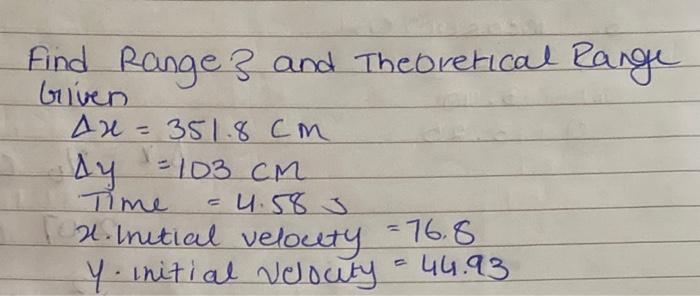 Find Range? and Theoretical Range
Given
Δx = 351.8 cm
Δy = 103 cm
Time = 4.58 s
x. Initial velocity = 76.8
y. initial velocity = 44.93